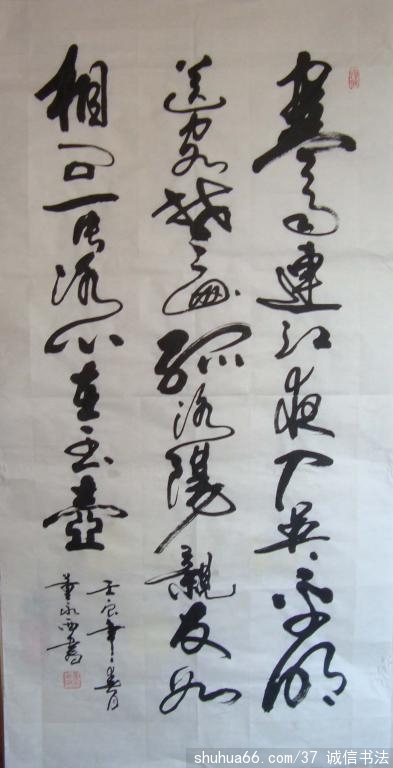 寒雨連江夜入吳平明
送客楚山孤洛陽親友如
相问一片冰心在玉壺
壬辰年春月
董永西書
shuhua66.com/37 诚信书法